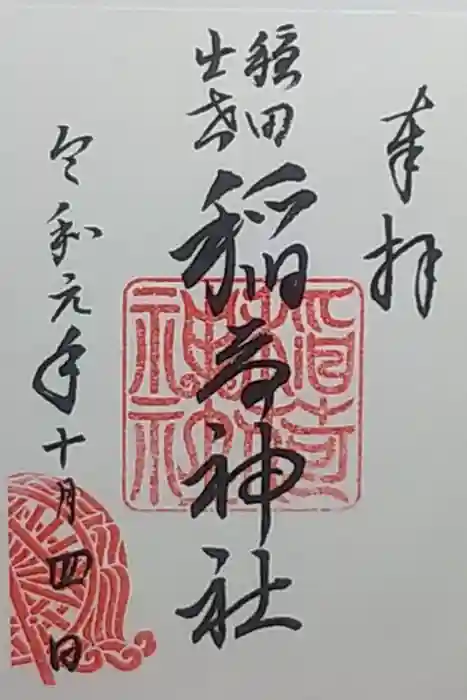 奉拝
出世
稲荷神社
令和元年十月四日
稲荷
神社